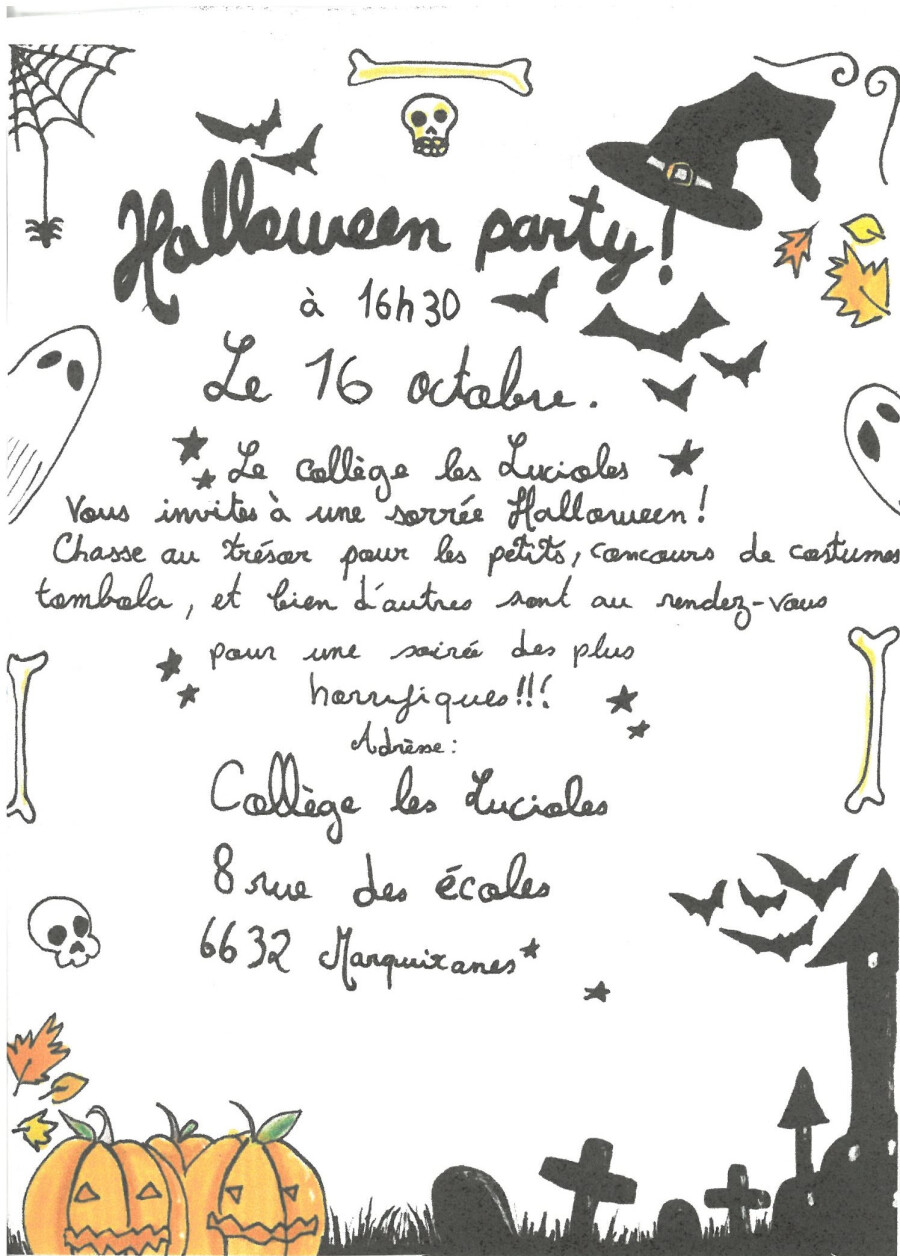 Halloween party!
à 16h30
Le 16 octobre.
Le collège les Lucioles
Vous invites à une sorrée Halloween!
Chasse au trésor pour les petits, concours de costumes
tombola, et bien d'autres sont au rendez-vous
pour une soirée des plus
horrifiques!!!
Adresse:
Collège les Lucioles
8 rue des écoles
6632 Marquixanes*